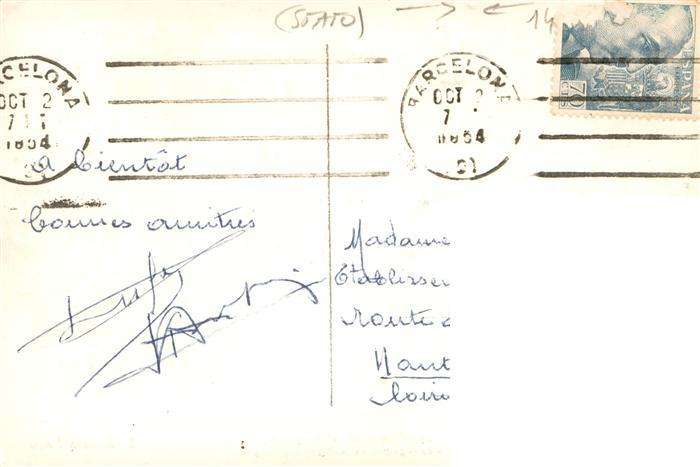 (STATO) 14
BARCELONA
OCT 2
7 T
1954
BARCELONA
OCT 2
7
1954
ESPAÑA
70 CTS
a bientôt
bonnes amitiés
Madame
Etablisse
Route
Nant
Loire